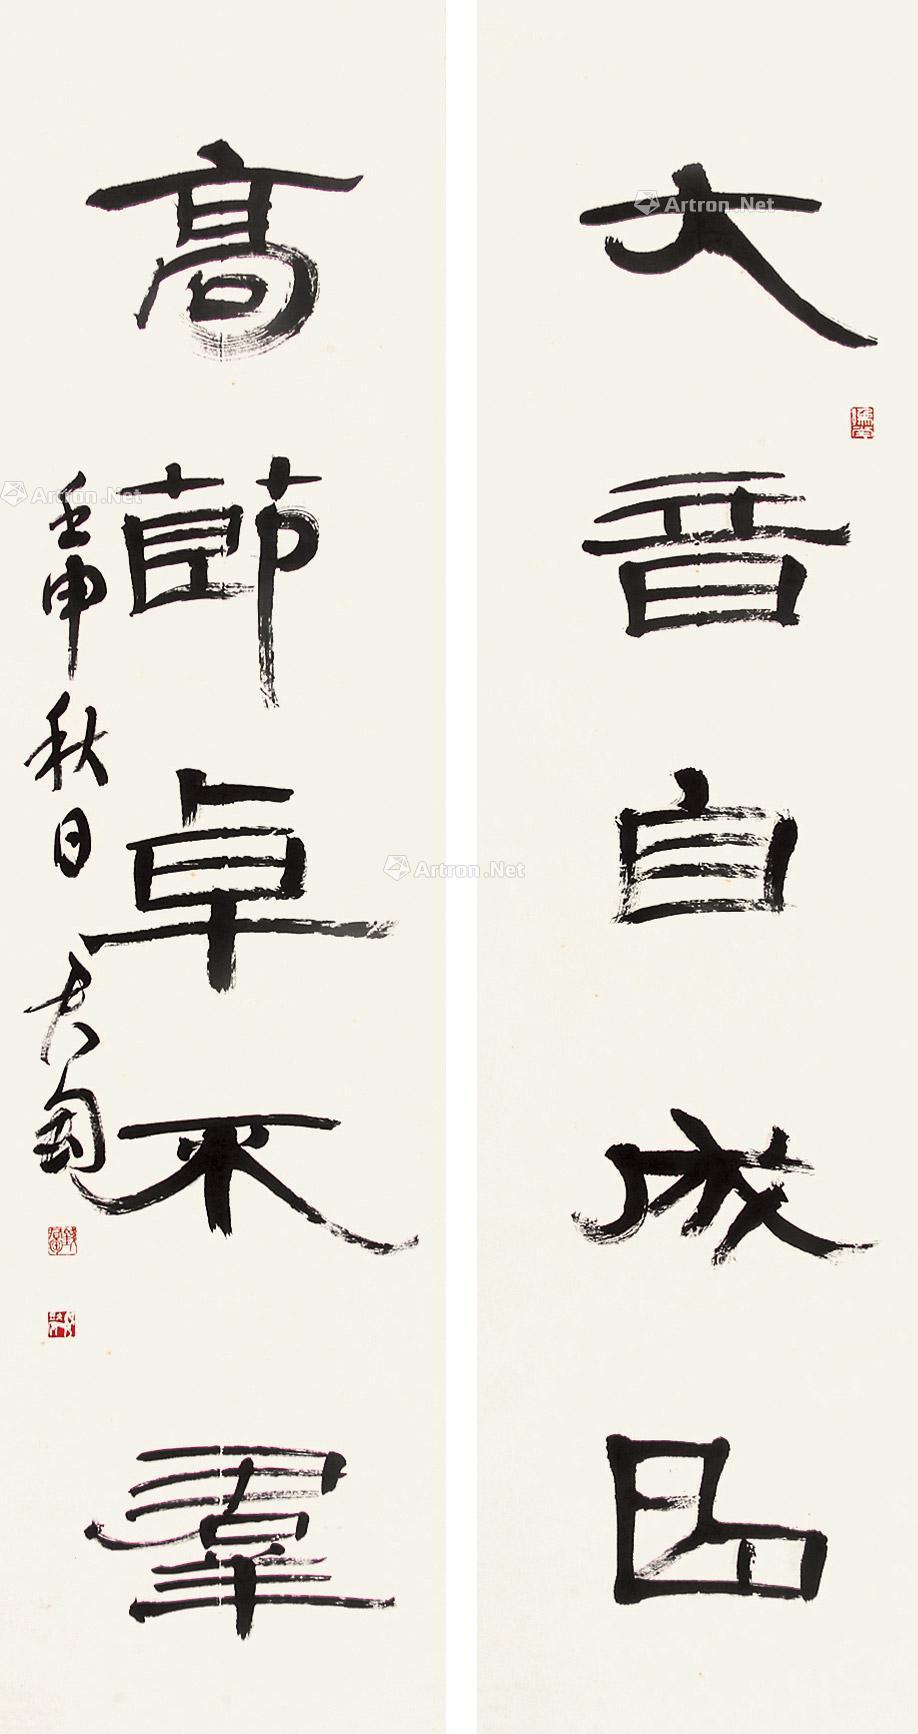 大音自成曲
高節卓不羣
壬申秋日君匋
Artron.Net
Artron.Net
Artron.Net